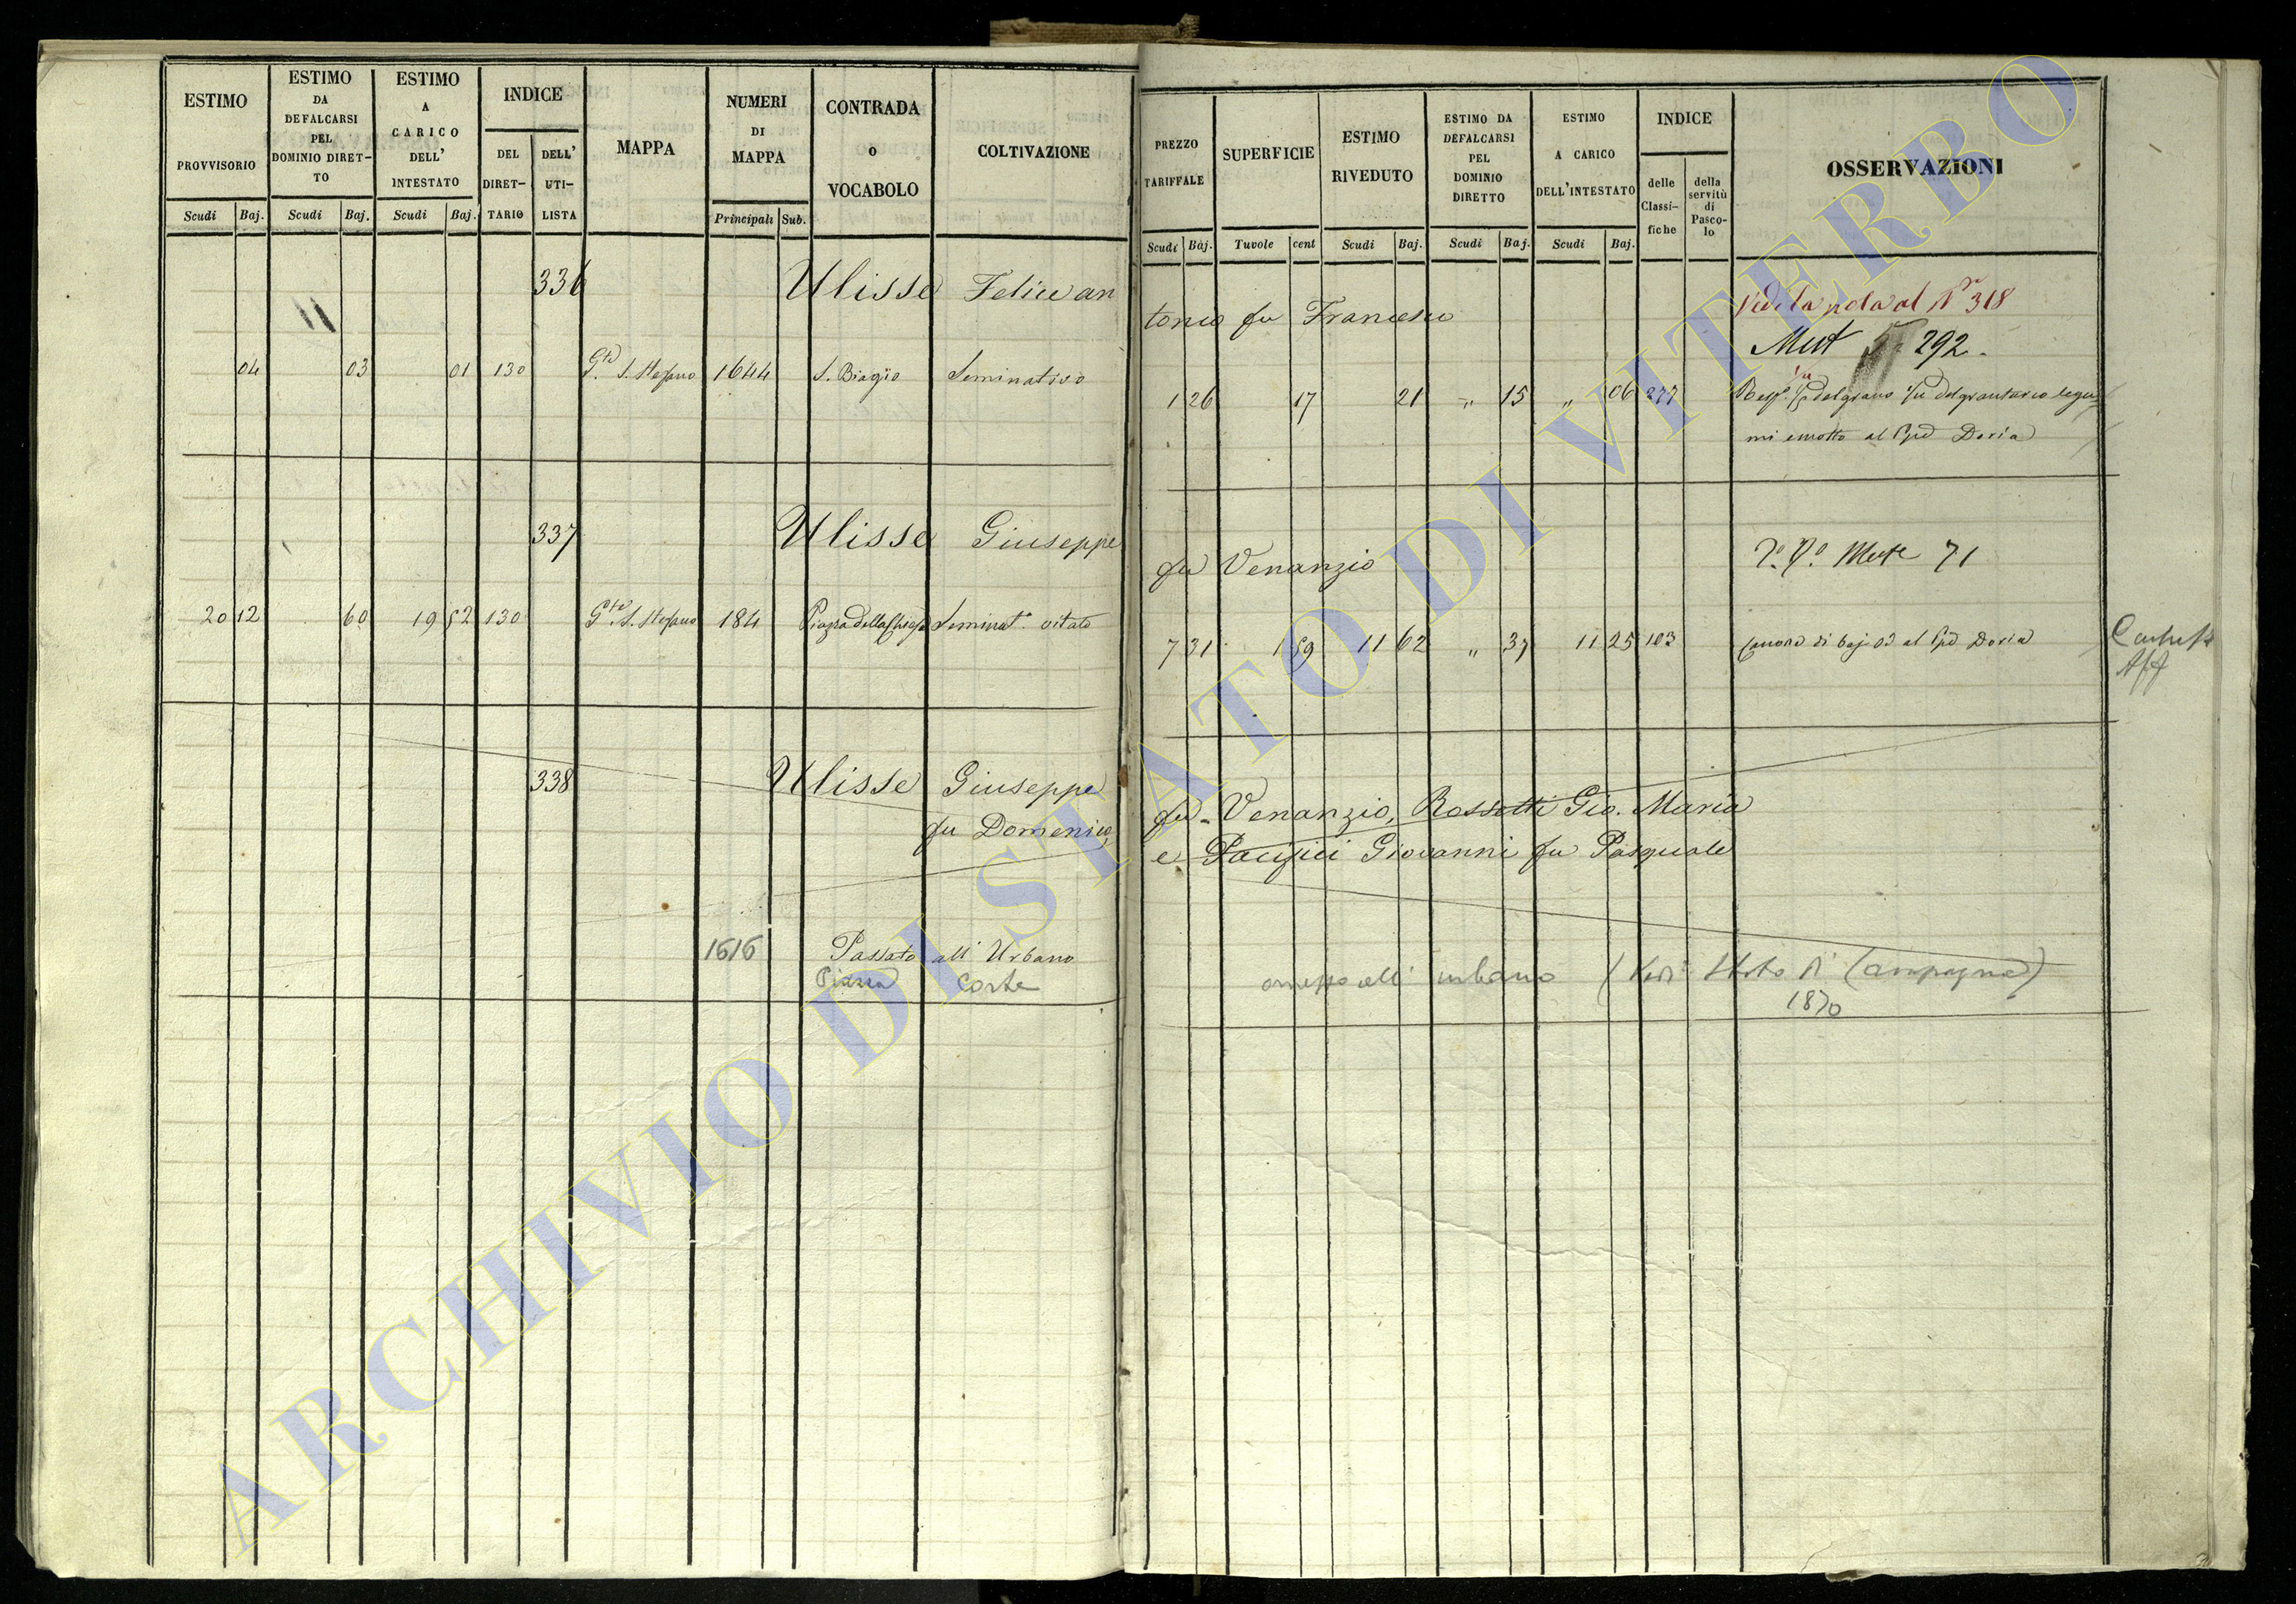 ESTIMO PROVVISORIO Scudi Baj.
ESTIMO DA DEFALCARSI PEL DOMINIO DIRETTO Scudi Baj.
ESTIMO A CARICO DELL' INTESTATO Scudi Baj.
INDICE DEL DIRETTARIO DELL' UTILISTA
MAPPA
NUMERI DI MAPPA Principali Sub.
CONTRADA O VOCABOLO
COLTIVAZIONE
PREZZO TARIFFALE Scudi Baj.
SUPERFICIE Tavole cent
ESTIMO RIVEDUTO Scudi Baj.
ESTIMO DA DEFALCARSI PEL DOMINIO DIRETTO Scudi Baj.
ESTIMO A CARICO DELL'INTESTATO Scudi Baj.
INDICE delle Classifiche della servitù di Pascolo
OSSERVAZIONI
336 Ulisse Felicean
tonio fu Francesco
Vedi la nota al N° 318
Mut 292.
04 03 01 130 Gte S. Stefano 1644 S. Biagio Seminativo
1 26 17 21 " 15 " 06 277 Resp. 1/5 del grano
mi al Ppe Doria
337 Ulisse Giuseppe
fu Venanzio
Mut 71
20 12 60 19 52 130 Gte S. Stefano 184 Piazza della Chiesa Seminat° vitato
7 31 1 59 11 62 " 37 11 25 103 Canone di baj 03 al Ppe Doria
338 Ulisse Giuseppe
fu Domenico,
fu Venanzio, Rossetti Gio. Maria
e Giovanni fu Pasquale
1616 Passato all' Urbano
Piazza Corte
all' urbano (Vedi Stato di Campagna)
1870
ARCHIVIO DI STATO DI VITERBO